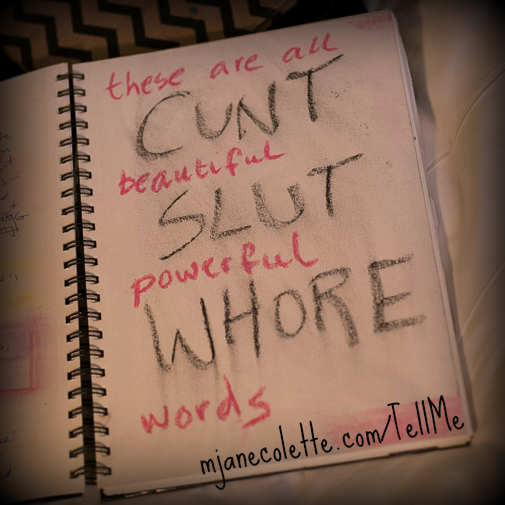 these are all
CUNT
beautiful
SLUT
powerful
WHORE
words
mjanecolette.com/TellMe